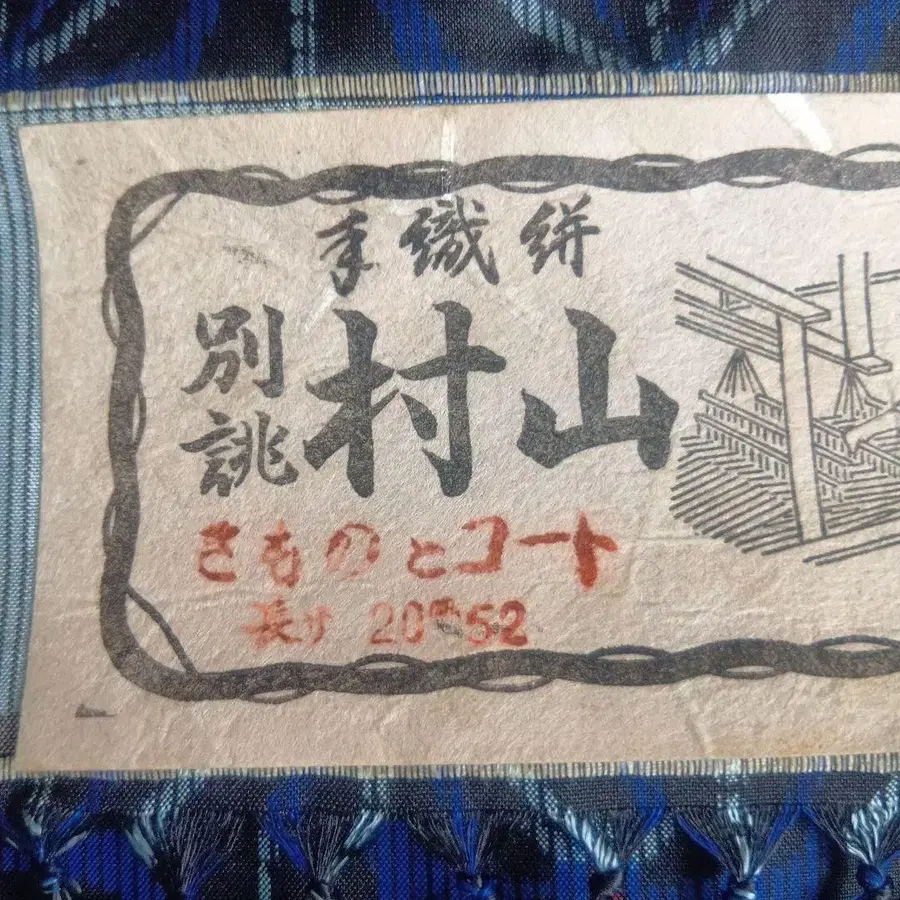 手織絣
別誂
村山
きものとコート
長サ 20 52